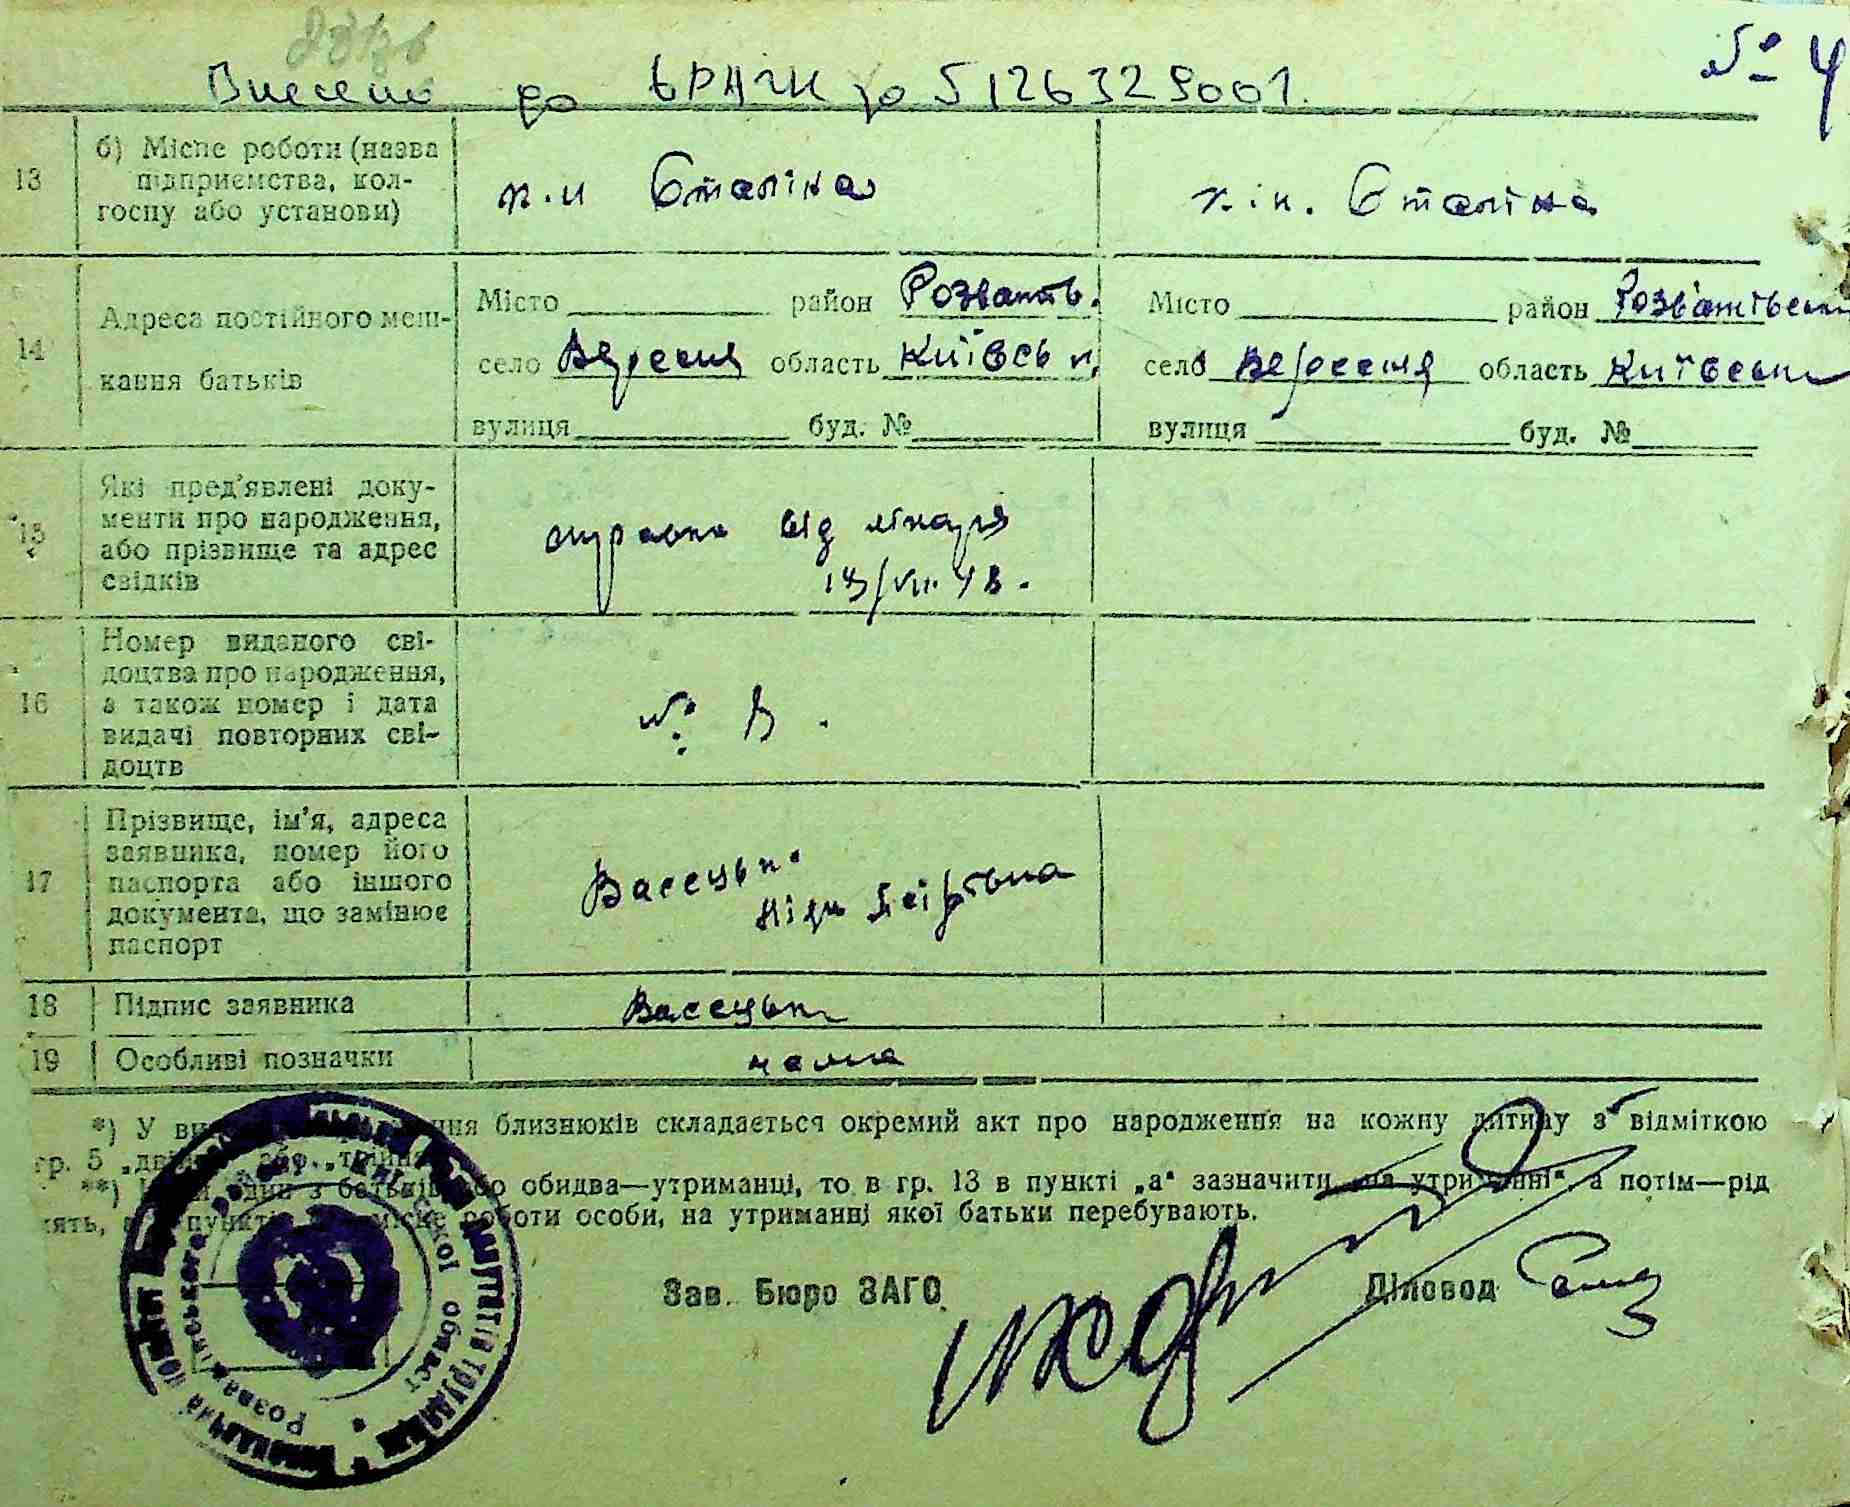 № 4
Внесено до ДРАЦС за 5126329001.
13 б) Місце роботи (назва
підприємства, кол-
госпу або установи)
к.и Сталіна
к.ім. Сталіна
14 Адреса постійного меш-
кання батьків
Місто район Розважів.
село Вересня область Київськ.
вулиця буд. №
Місто район Розважівськ
село Вересня область Київськ
вулиця буд. №
15 Які пред'явлені доку-
менти про народження,
або прізвище та адрес
свідків
справка від лікаря
13/VII.48.
16 Номер виданого сві-
доцтва про народження,
а також номер і дата
видачі повторних сві-
доцтв
№
17 Прізвище, ім'я, адреса
заявника, номер його
паспорта або іншого
документа, що замінює
паспорт
Васецьк.
18 Підпис заявника
Васецьк
19 Особливі позначки
нема
*) У ви ння близнюків складається окремий акт про народження на кожну дитину з відміткою
гр. 5 „дві або „трійня
**) один з батьків або обидва—утриманці, то в гр. 13 в пункті „а“ зазначити „на утриманні“, а потім—рід
пункті місце роботи особи, на утриманні якої батьки перебувають.
Зав. Бюро ЗАГС
Діловод
депутатів трудящ
Розважівського області